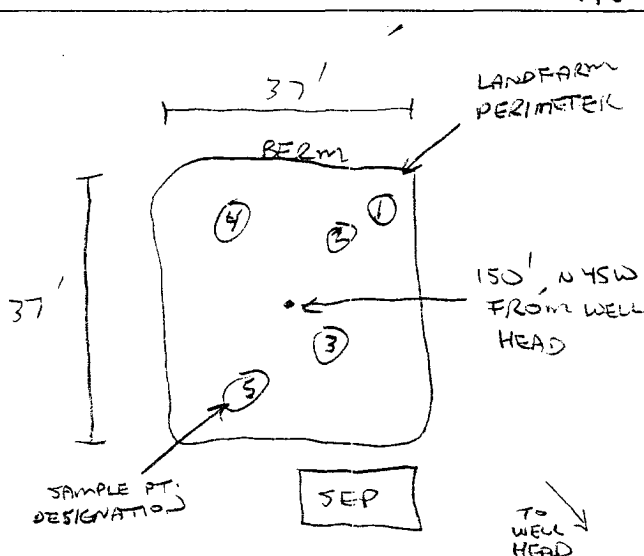 37'
LANDFARM
PERIMETER
BERM
4
1
2
37'
150', N45W
FROM WELL
HEAD
3
5
SAMPLE PT.
DESIGNATION
SEP
TO
WELL
HEAD